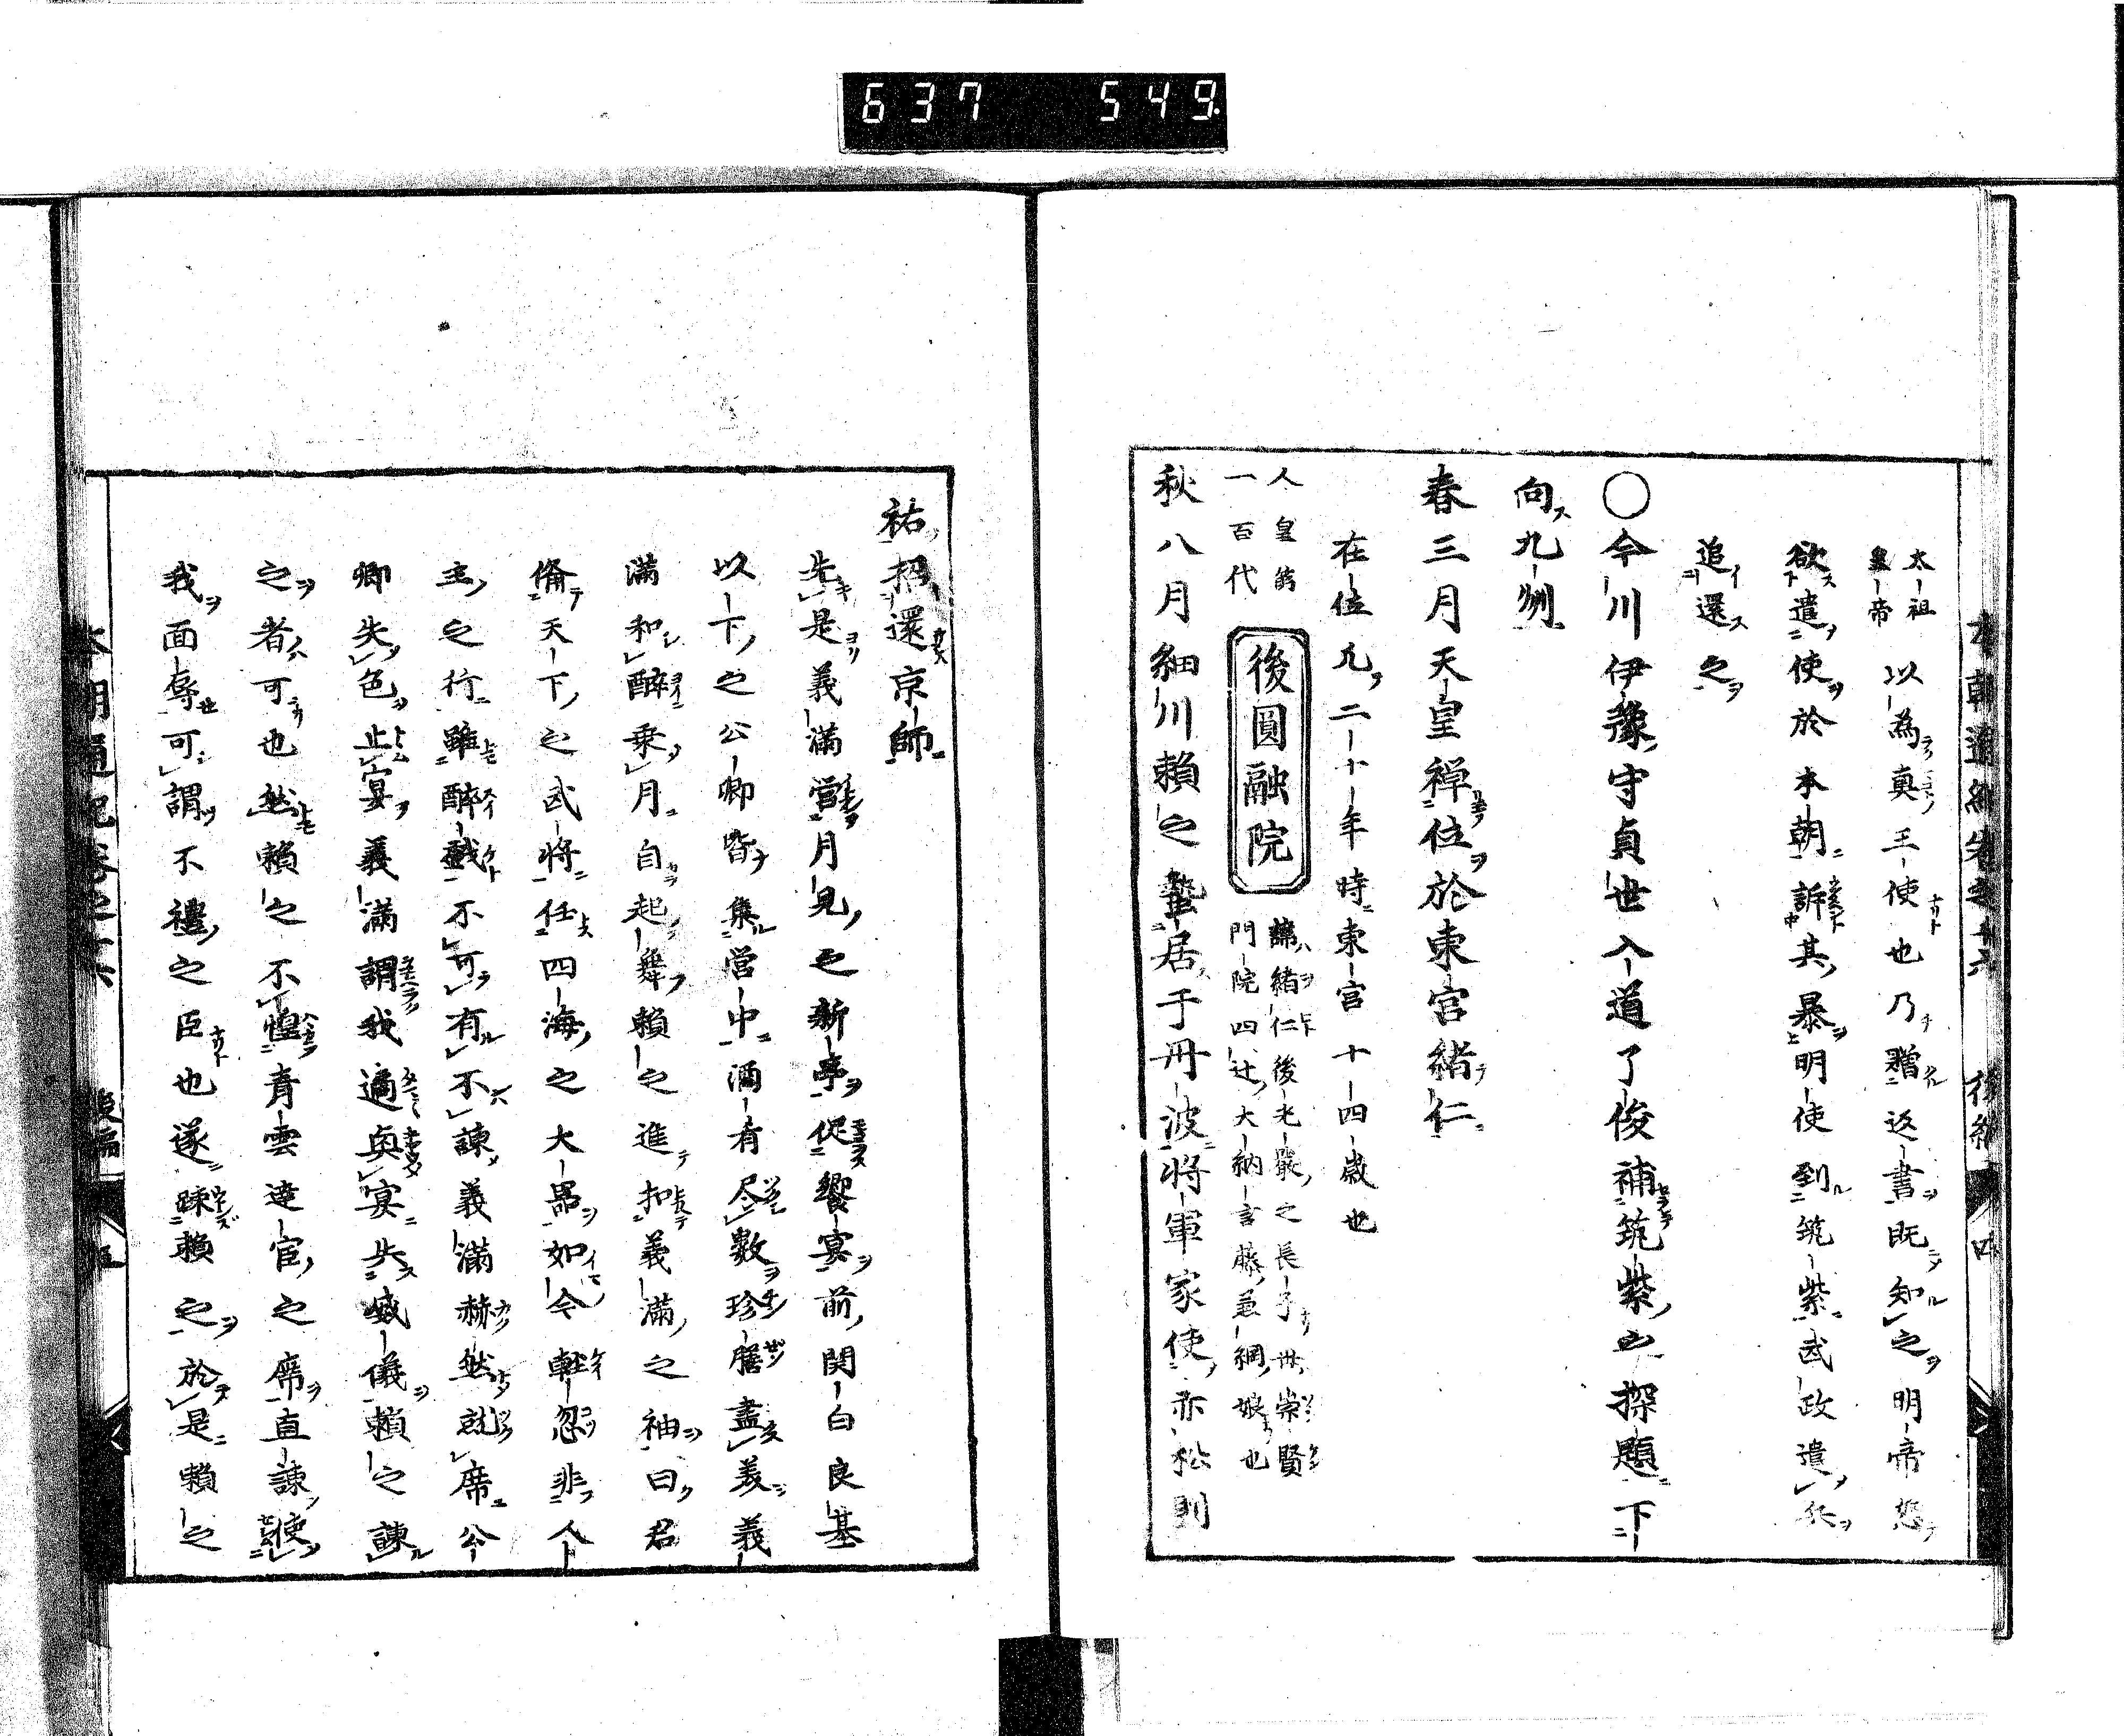 637 549
太祖皇帝以為真王使也乃贈返書既知之明帝怒
欲遣使於本朝訴其暴明使到筑紫武政遣兵
追還之
〇今川伊豫守貞世入道了俊補筑紫之探題下
向九州
春三月天皇禅位於東宮緒仁
在位凡二十年時東宮十四歳也
人皇第一百代
後圓融院
諱緒仁後光嚴之長子母崇賢
門院四辻大納言藤兼綱娘也
秋八月細川頼之蟄居于丹波将軍家使赤松則
祐招還京師
先是義満営月見之新亭促饗宴前関白良基
以下之公卿皆集営中酒肴尽数珍膳盡美義
満和醉乗月自起舞頼之進扣義満之袖曰君
脩天下之武将任四海之大器如今軽忽非人
主之行雖醉戯不可有不諫義満赫然就席公
卿失色止宴義満謂我適與宴失威儀頼之諫
之者可也然頼之不憚青雲達官之席直諫使
我面辱可謂不禮之臣也遂踈頼之於是頼之
本朝通紀巻之十六 後編